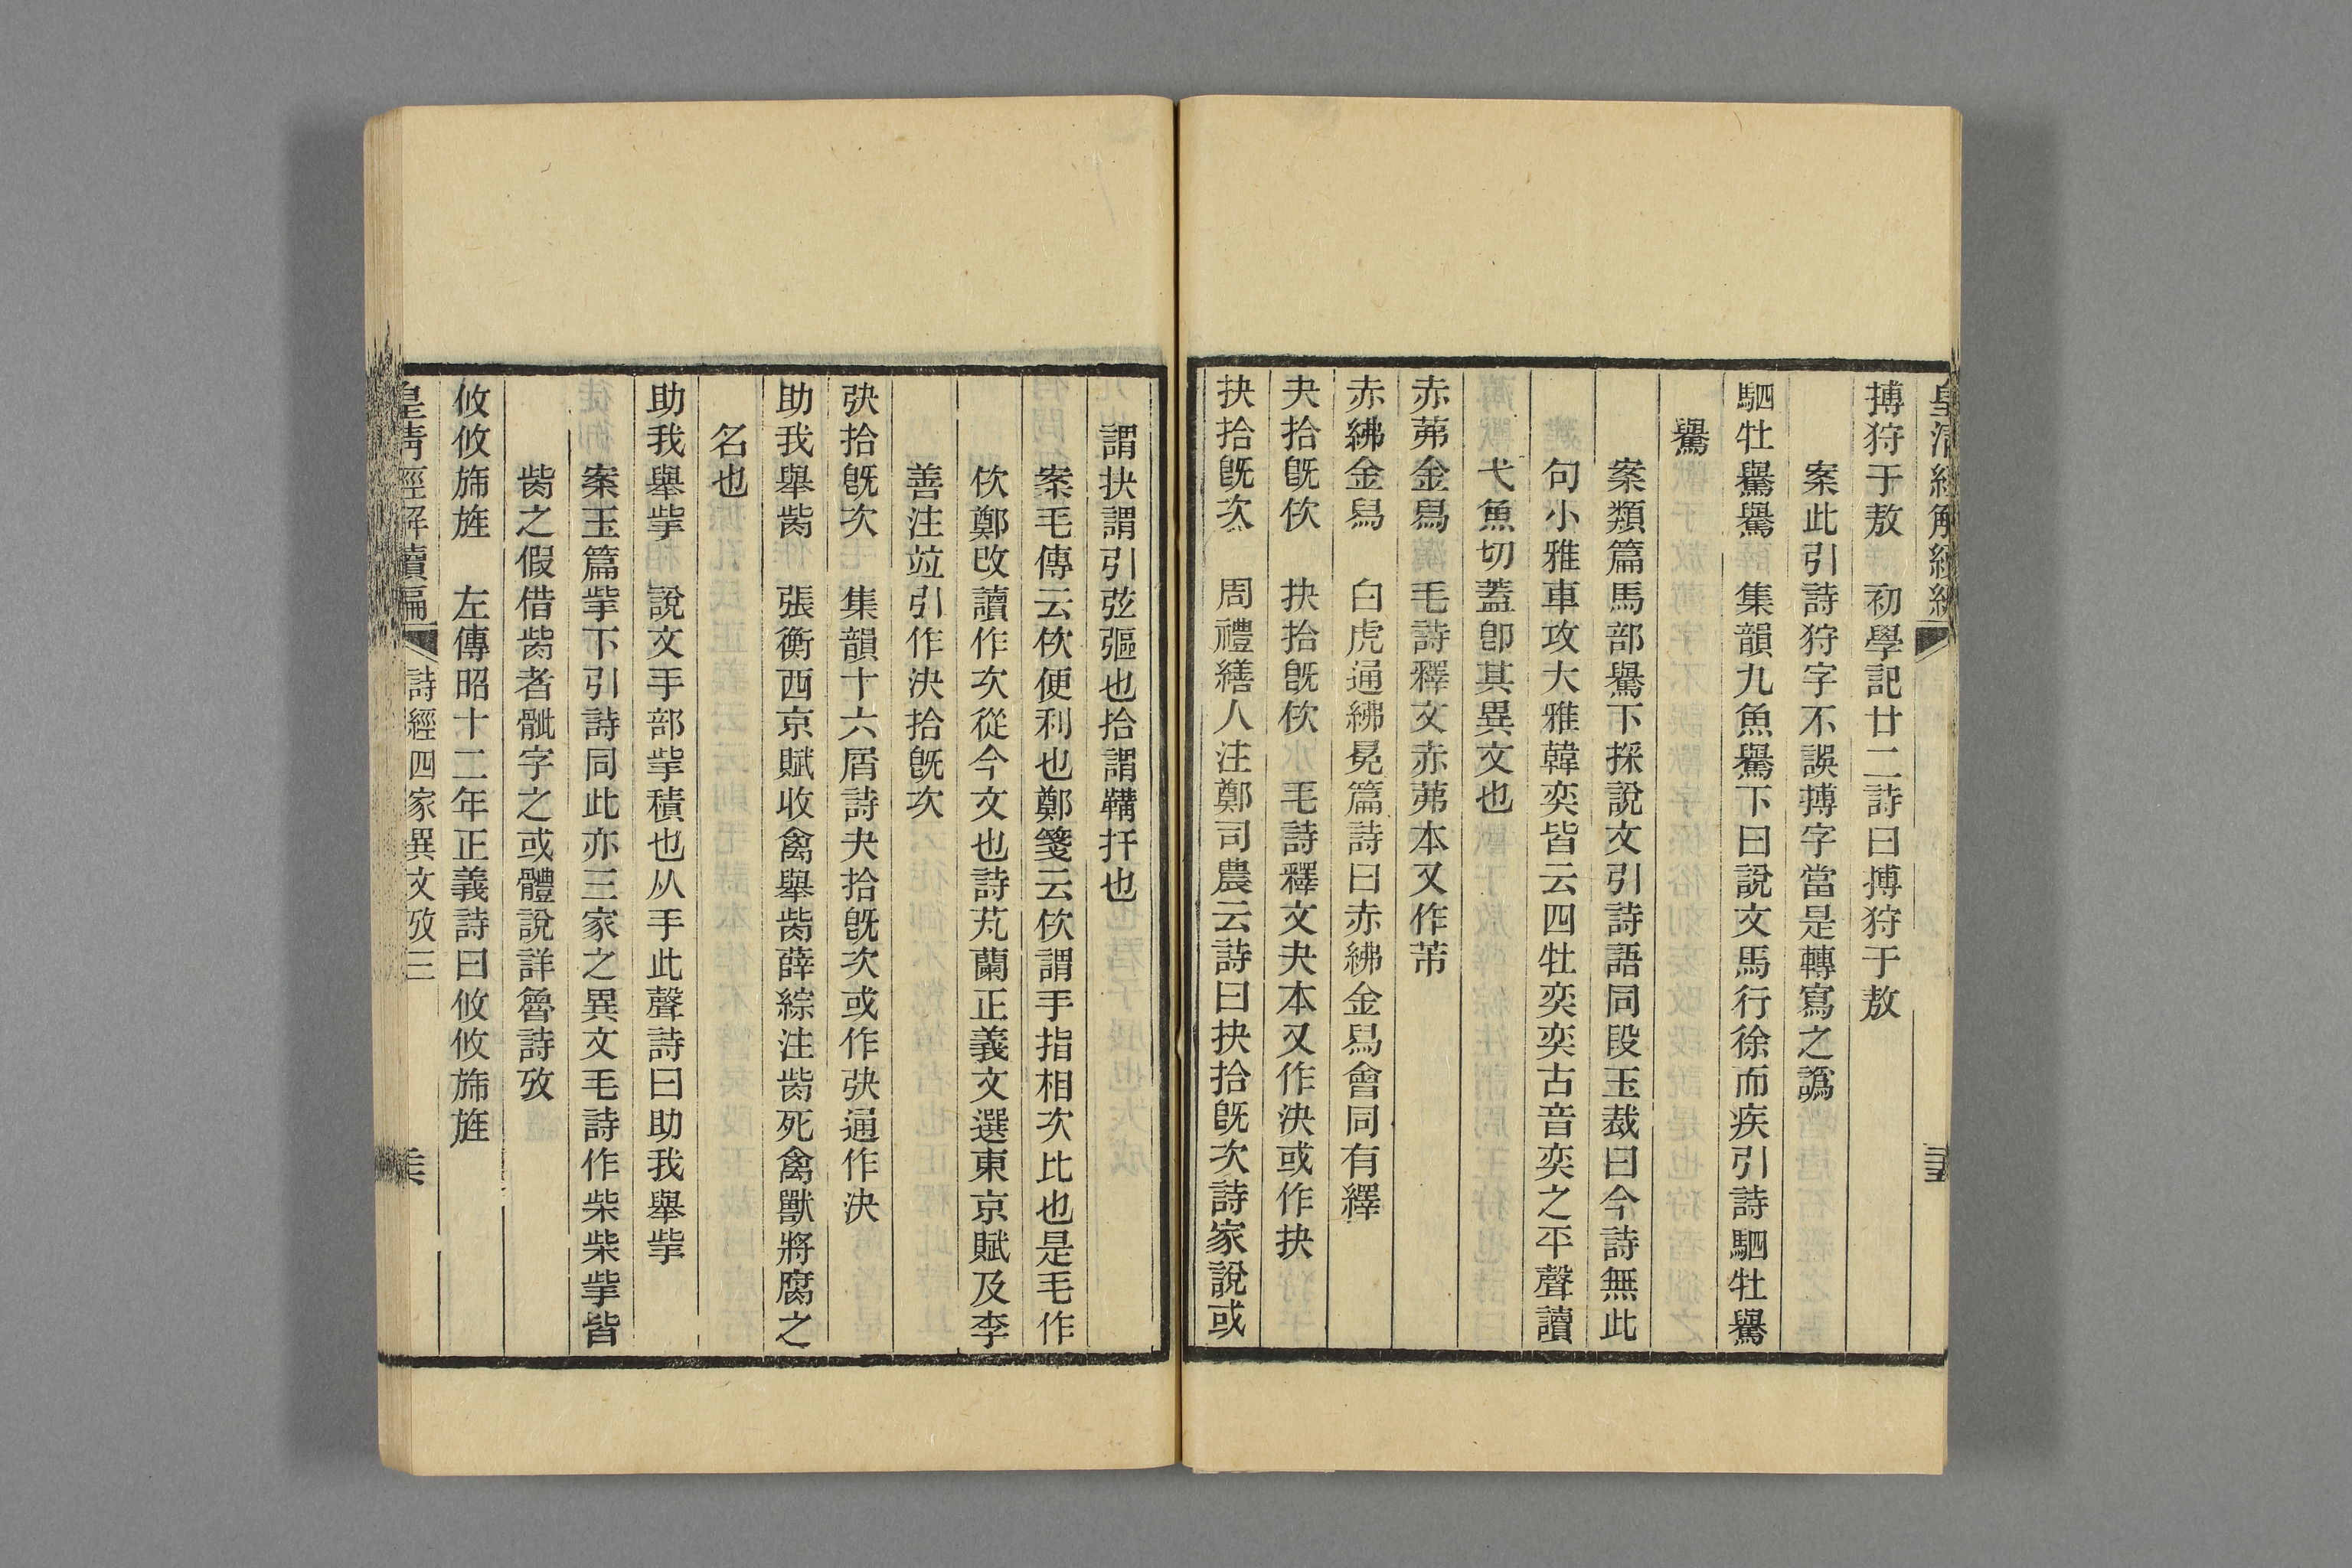 搏狩于敖　初學記廿二詩曰搏狩于敖
案此引詩狩字不誤搏字當是轉寫之譌
駟牡鸒鸒　集韻九魚鸒下曰說文馬行徐而疾引詩駟牡鸒
鸒
案類篇馬部鸒下採說文引詩語同段玉裁曰今詩無此
句小雅車攻大雅韓奕皆云四牡奕奕古音奕之平聲讀
弋魚切蓋卽其異文也
赤茀金舄　毛詩釋文赤茀本又作芾
赤紼金舄　白虎通紼冕篇詩曰赤紼金舄會同有繹
夬拾旣佽　抉拾旣佽　毛詩釋文夬本又作決或作抉
抉拾旣次　周禮繕人注鄭司農云詩曰抉拾旣次詩家說或
謂抉謂引弦彄也拾謂韝扞也
案毛傳云佽便利也鄭箋云佽謂手指相次比也是毛作
佽鄭改讀作次從今文也詩芄蘭正義文選東京賦及李
善注竝引作決拾旣次
弽拾旣次　集韻十六屑詩夬拾旣次或作弽通作決
助我舉胔　張衡西京賦收禽舉胔薛綜注胔死禽獸將腐之
名也
助我舉掌　說文手部掌積也从手此聲詩曰助我舉掌
案玉篇掌下引詩同此亦三家之異文毛詩作柴柴掌皆
胔之假借胔者骴字之或體說詳魯詩攷
攸攸旆旌　左傳昭十二年正義詩曰攸攸旆旌
皇淸經解續編　詩經四家異文攷三